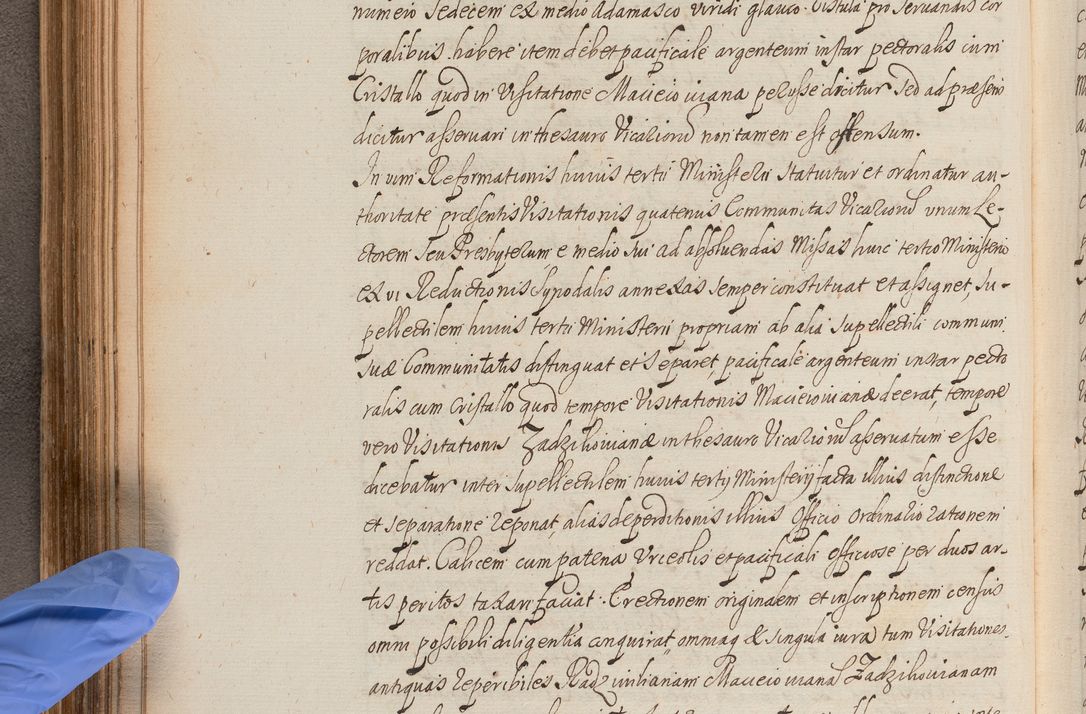 numero Sedecem ex medio Adamasco viridi glauco. Vistula pro servandis cor
poralibus. habere item debet pacificale argenteum instar pectoralis cum
Cristallo quod in Visitatione Macieiowiana periisse dicitur sed ad præsens
dicitur asservari in thesauro Vicariorū non tamen est ostensum.
In vim Reformationis huius tertii Ministerii statuitur et ordinatur au-
thoritate præsentis Visitationis quatenus Communitas Vicariorū unum Le-
ctorem seu Presbyterum, e medio sui ad absolvendas Missas huic tertio Ministerio
ex vi Reductionis Synodalis annexas semper constituat et assignet, su-
pellectilem huius tertii Ministerii propriam ab alia supellectili communi
suæ Communitatis distinguat et separet, pacificale argenteum instar pecto
ralis cum Cristallo quod tempore Visitationis Macieiowianæ deerat, tempore
vero Visitationis Zadzikowianæ in thesauro Vicariorū asservatum esse
dicebatur inter supellectilem huius tertij Ministerij facta illius distinctione
et separatione reponat, alias deperditionis illius Officio Ordinario rationem
reddat. Calicem cum patena Urceolis et pacificali efficiose per duos ar-
tis peritos taxari faciat. Erectionem originalem et inscriptionem census
omni possibili diligentia conquirat, omniaq & singula iura tum Visitationes
antiquas reperibiles Radziwilianam Macieiowianā Zadzikowianam